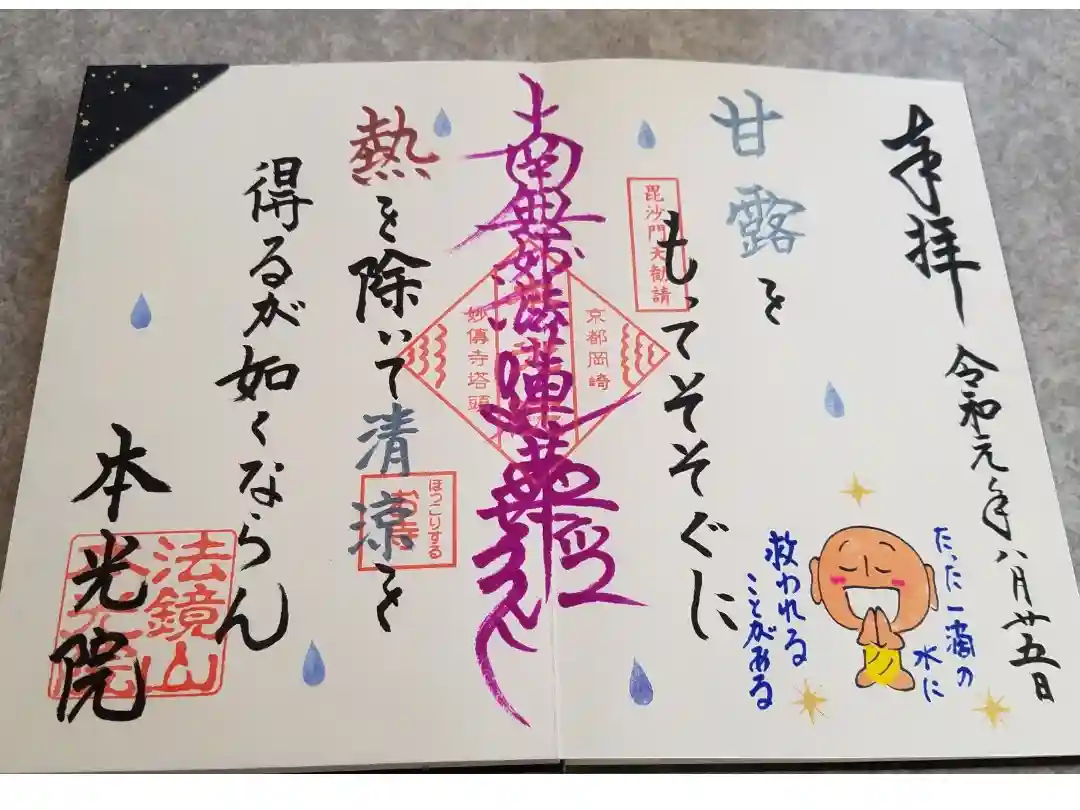 奉拝
令和元年八月廿五日
たった一滴の
水に
救われる
ことがある
甘露を
もってそそぐに
毘沙門天勧請
京都岡崎
南無妙法蓮華経
妙傳寺塔頭
熱を除いて清涼を
ほっこりする
お寺
得るが如くならん
本光院
法鏡山
本光院